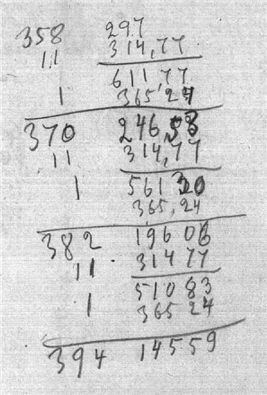 358 297
11 314,77
611,77
1 365,24
370 246,53
11 314,77
1 561,30
365,24
382 196 06
11 314 77
510 83
1 365 24
394 145 59